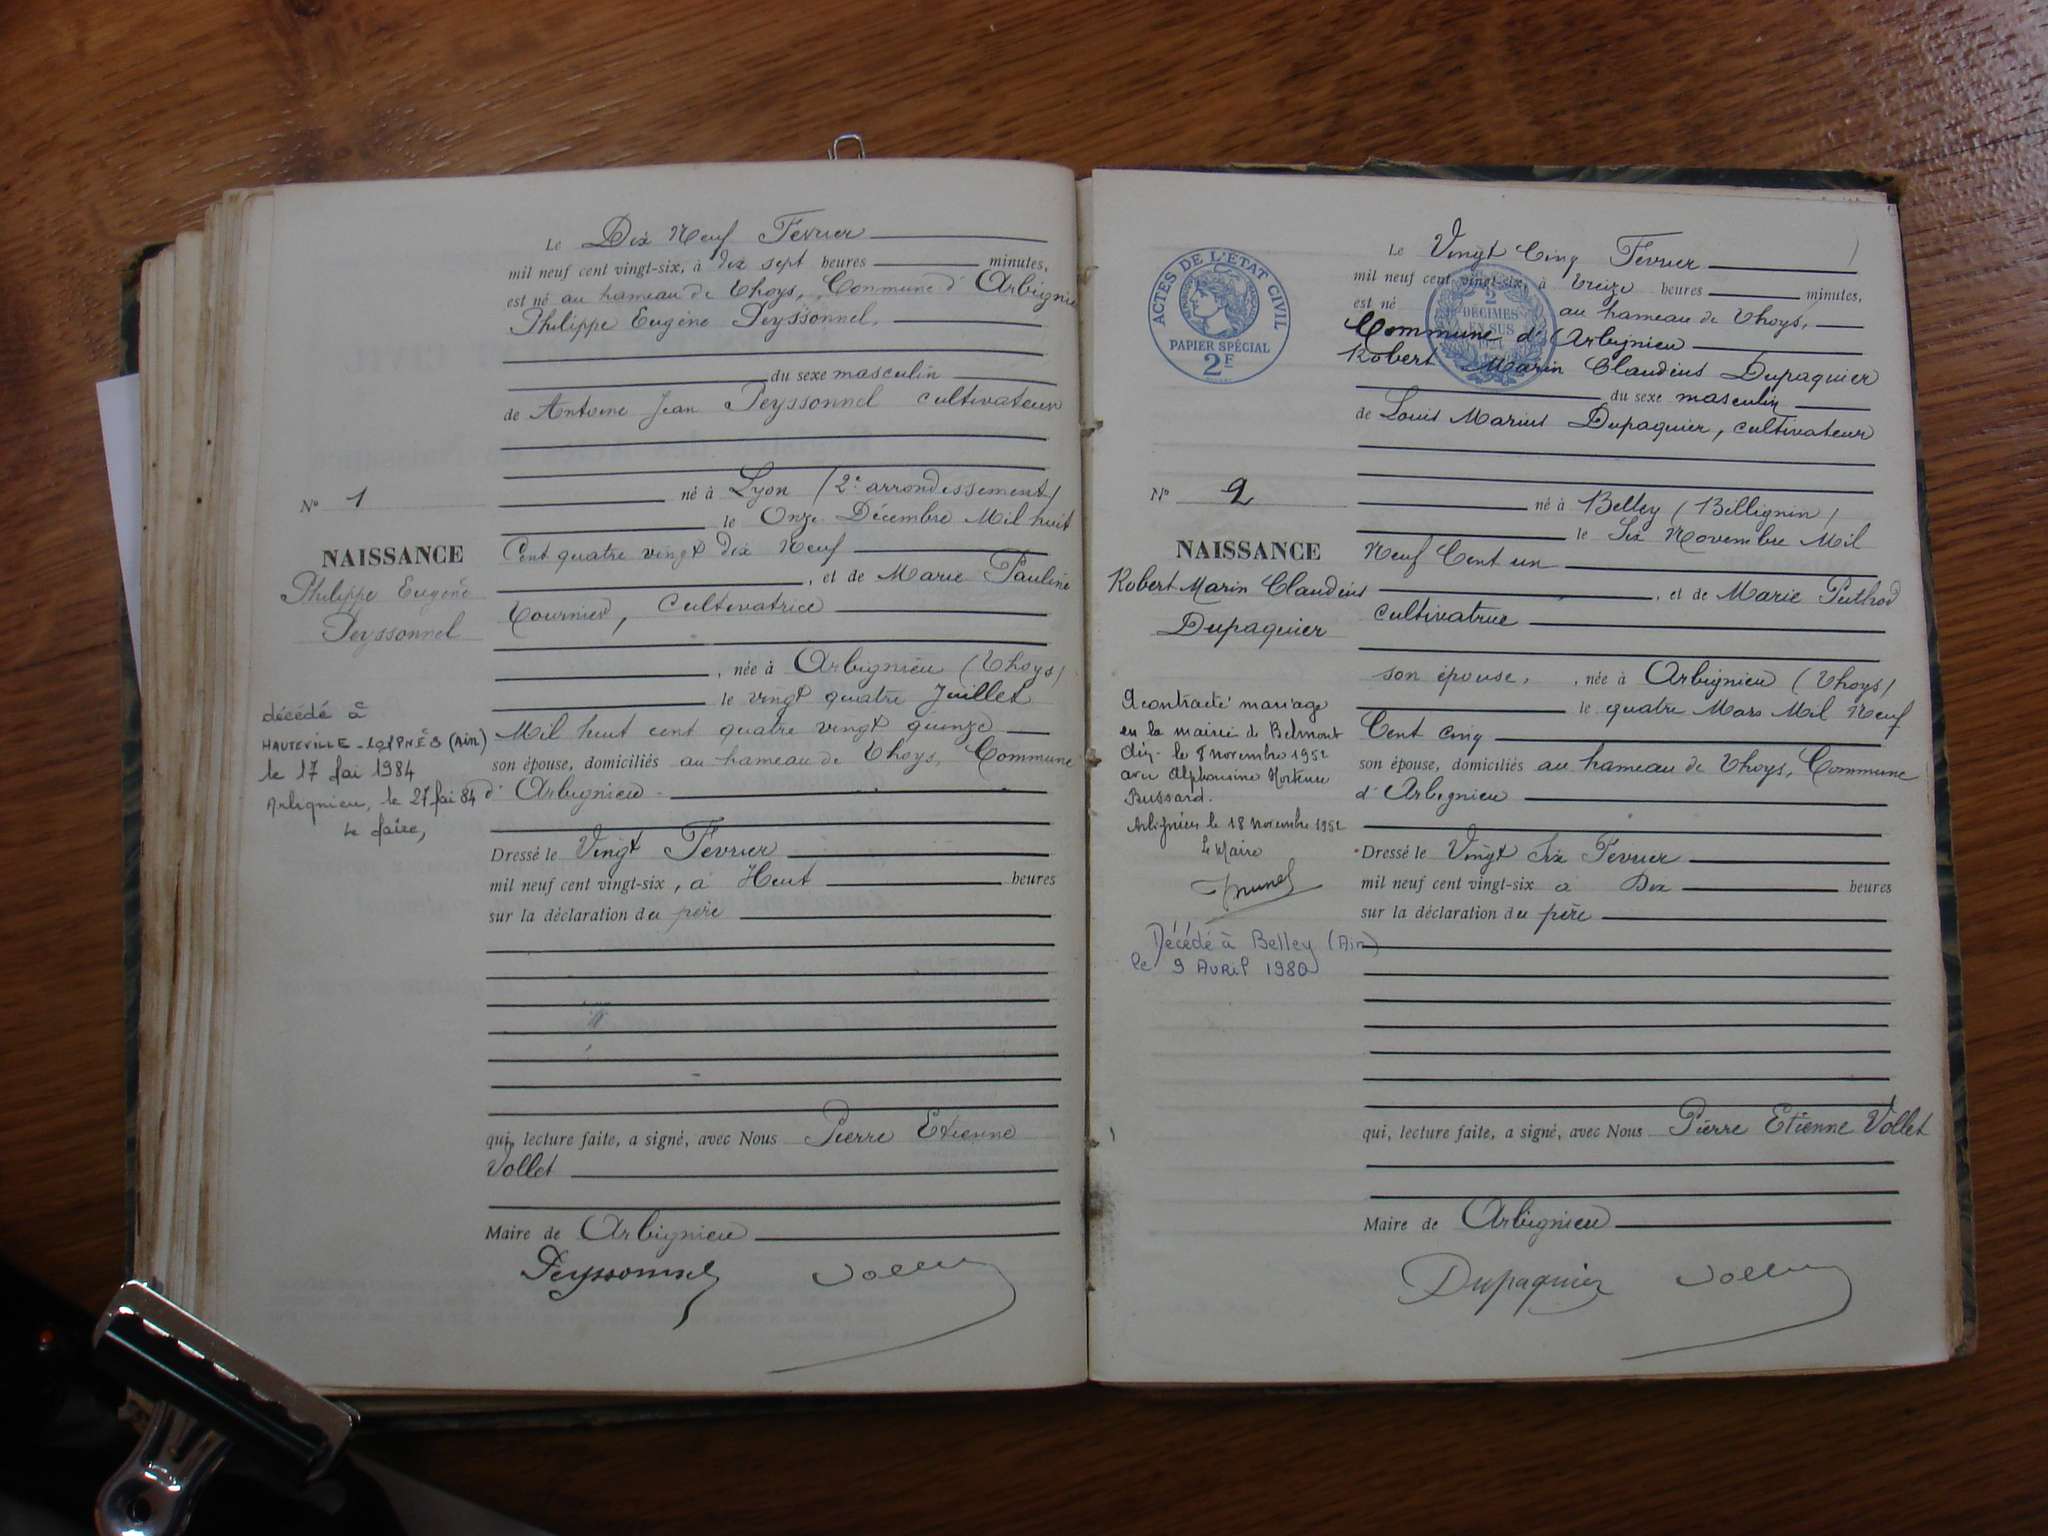 Le Dix Neuf Fevrier
mil neuf cent vingt-six, à dix sept heures minutes,
est né au hameau de Thoys, Commune d'Arbignieu
Philippe Eugène Peyssonnel,
du sexe masculin
de Antoine Jean Peyssonnel cultivateur
né à Lyon (2e arrondissement)
le Onze Décembre Mil huit
Cent quatre vingt dix Neuf
, et de Marie Pauline
Tournier, cultivatrice
, née à Arbignieu (Thoys)
le vingt quatre Juillet
Mil huit cent quatre vingt quinze
son épouse, domiciliés au hameau de Thoys, Commune
d'Arbignieu
Dressé le Vingt Fevrier
mil neuf cent vingt-six, à Huit heures
sur la déclaration du père
qui, lecture faite, a signé, avec Nous Pierre Etienne
Vollet
Maire de Arbignieu
Peyssonnel Vollet
No 1
NAISSANCE
Philippe Eugène
Peyssonnel
décédé à
HAUTEVILLE-LOMPNÉS (Ain)
le 17 Mai 1984
Arbignieu, le 21 Mai 84
Le Maire,
ACTES DE L'ÉTAT CIVIL
PAPIER SPÉCIAL
2F
2
DÉCIMES
EN SUS
Le Vingt Cinq Fevrier
mil neuf cent vingt-six, à treize heures minutes,
est né au hameau de Thoys,
Commune d'Arbignieu
Robert Marin Claudius Dupaquier
du sexe masculin
de Louis Marius Dupaquier, cultivateur
né à Belley (Billignin)
le Six Novembre Mil
Neuf Cent un
, et de Marie Puthod
cultivatrice
son épouse, , née à Arbignieu (Thoys)
le quatre Mars Mil Neuf
Cent cinq
son épouse, domiciliés au hameau de Thoys, Commune
d'Arbignieu
Dressé le Vingt Six Fevrier
mil neuf cent vingt-six à Dix heures
sur la déclaration du père
qui, lecture faite, a signé, avec Nous Pierre Etienne Vollet
Maire de Arbignieu
Dupaquier Vollet
No 2
NAISSANCE
Robert Marin Claudius
Dupaquier
A contracté mariage
en la mairie de Belmont
le 8 novembre 1952
avec Alphonsine Hortense
Bussard.
Arbignieu le 18 novembre 1952
Le Maire
Décédé à Belley (Ain)
le 9 Avril 1980